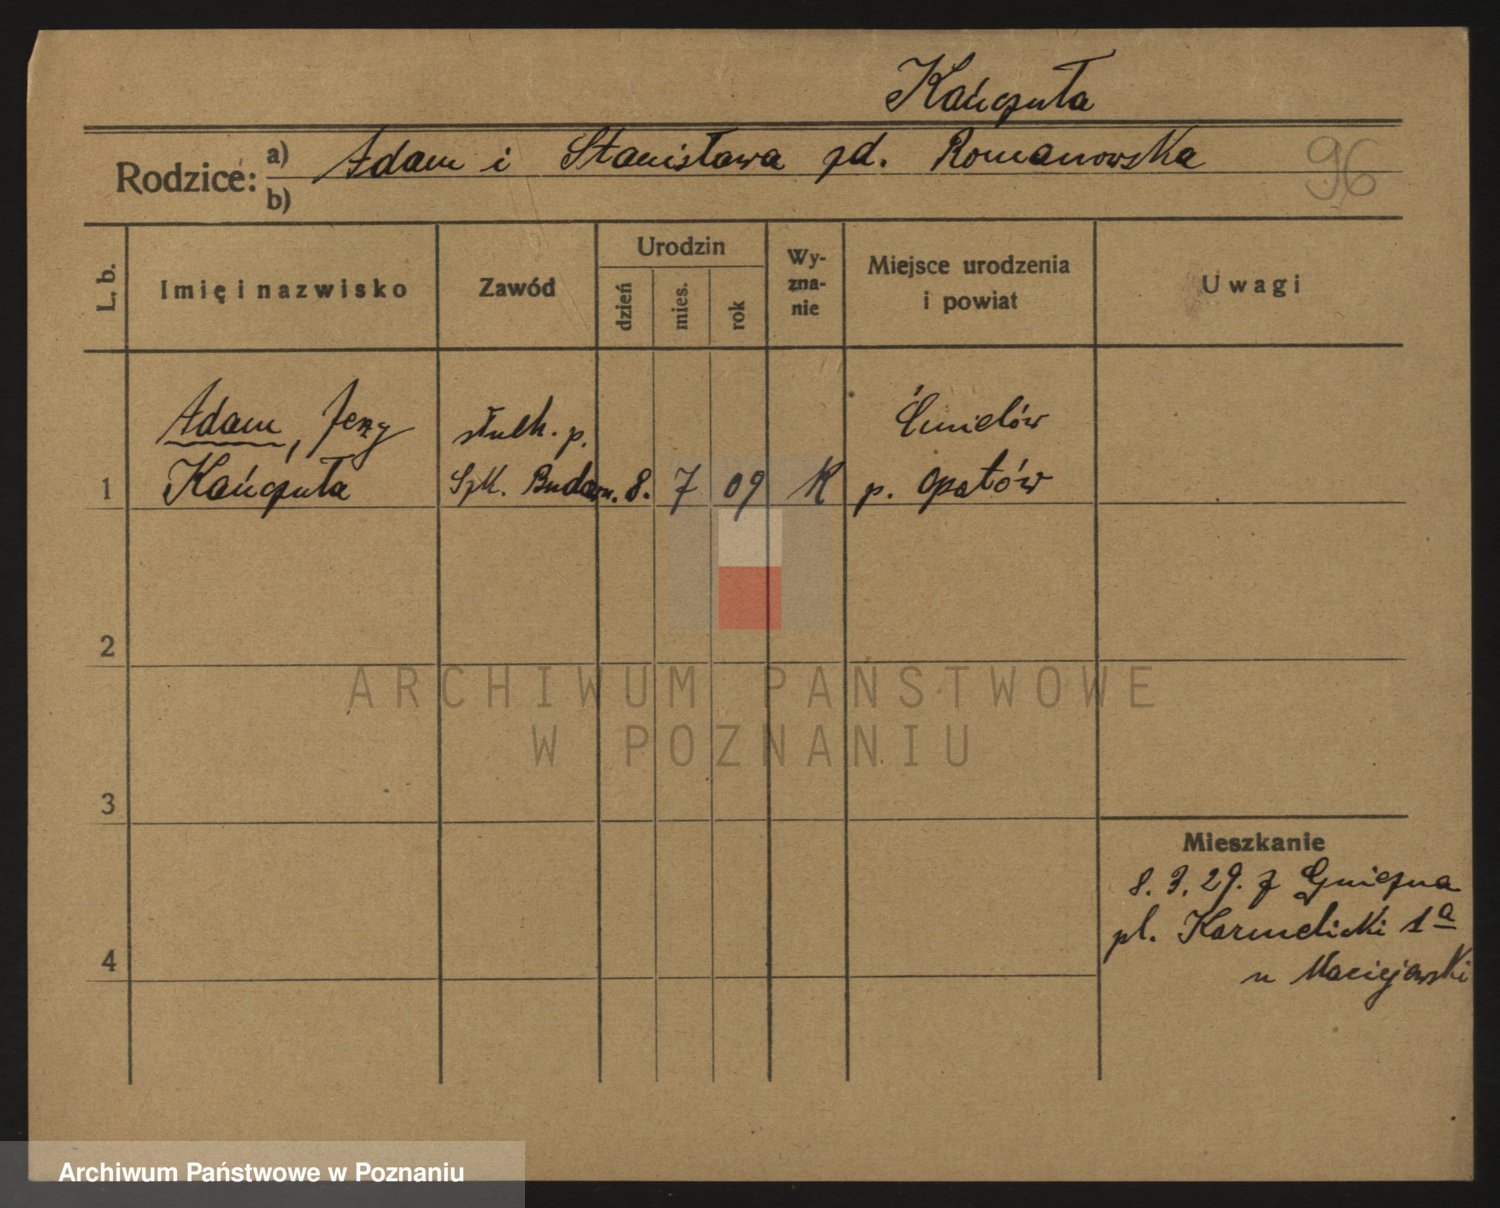 Kańczuła
Rodzice: a) Adam i Stanisława zd. Romanowska
b)
96
L. b.
Imię i nazwisko
Zawód
Urodzin
dzień
mies.
rok
Wy-
zna-
nie
Miejsce urodzenia
i powiat
Uwagi
Adam, Jerzy słuch. p. Ćmielów
1 Kańczuła Szk. Budown. 8. 7 09 K p. Opatów
2
ARCHIWUM PAŃSTWOWE
W POZNANIU
3
Mieszkanie
8. 3. 29. z Gniezna
pl. Karmelicki 1a
4
u Maciejewski
Archiwum Państwowe w Poznaniu